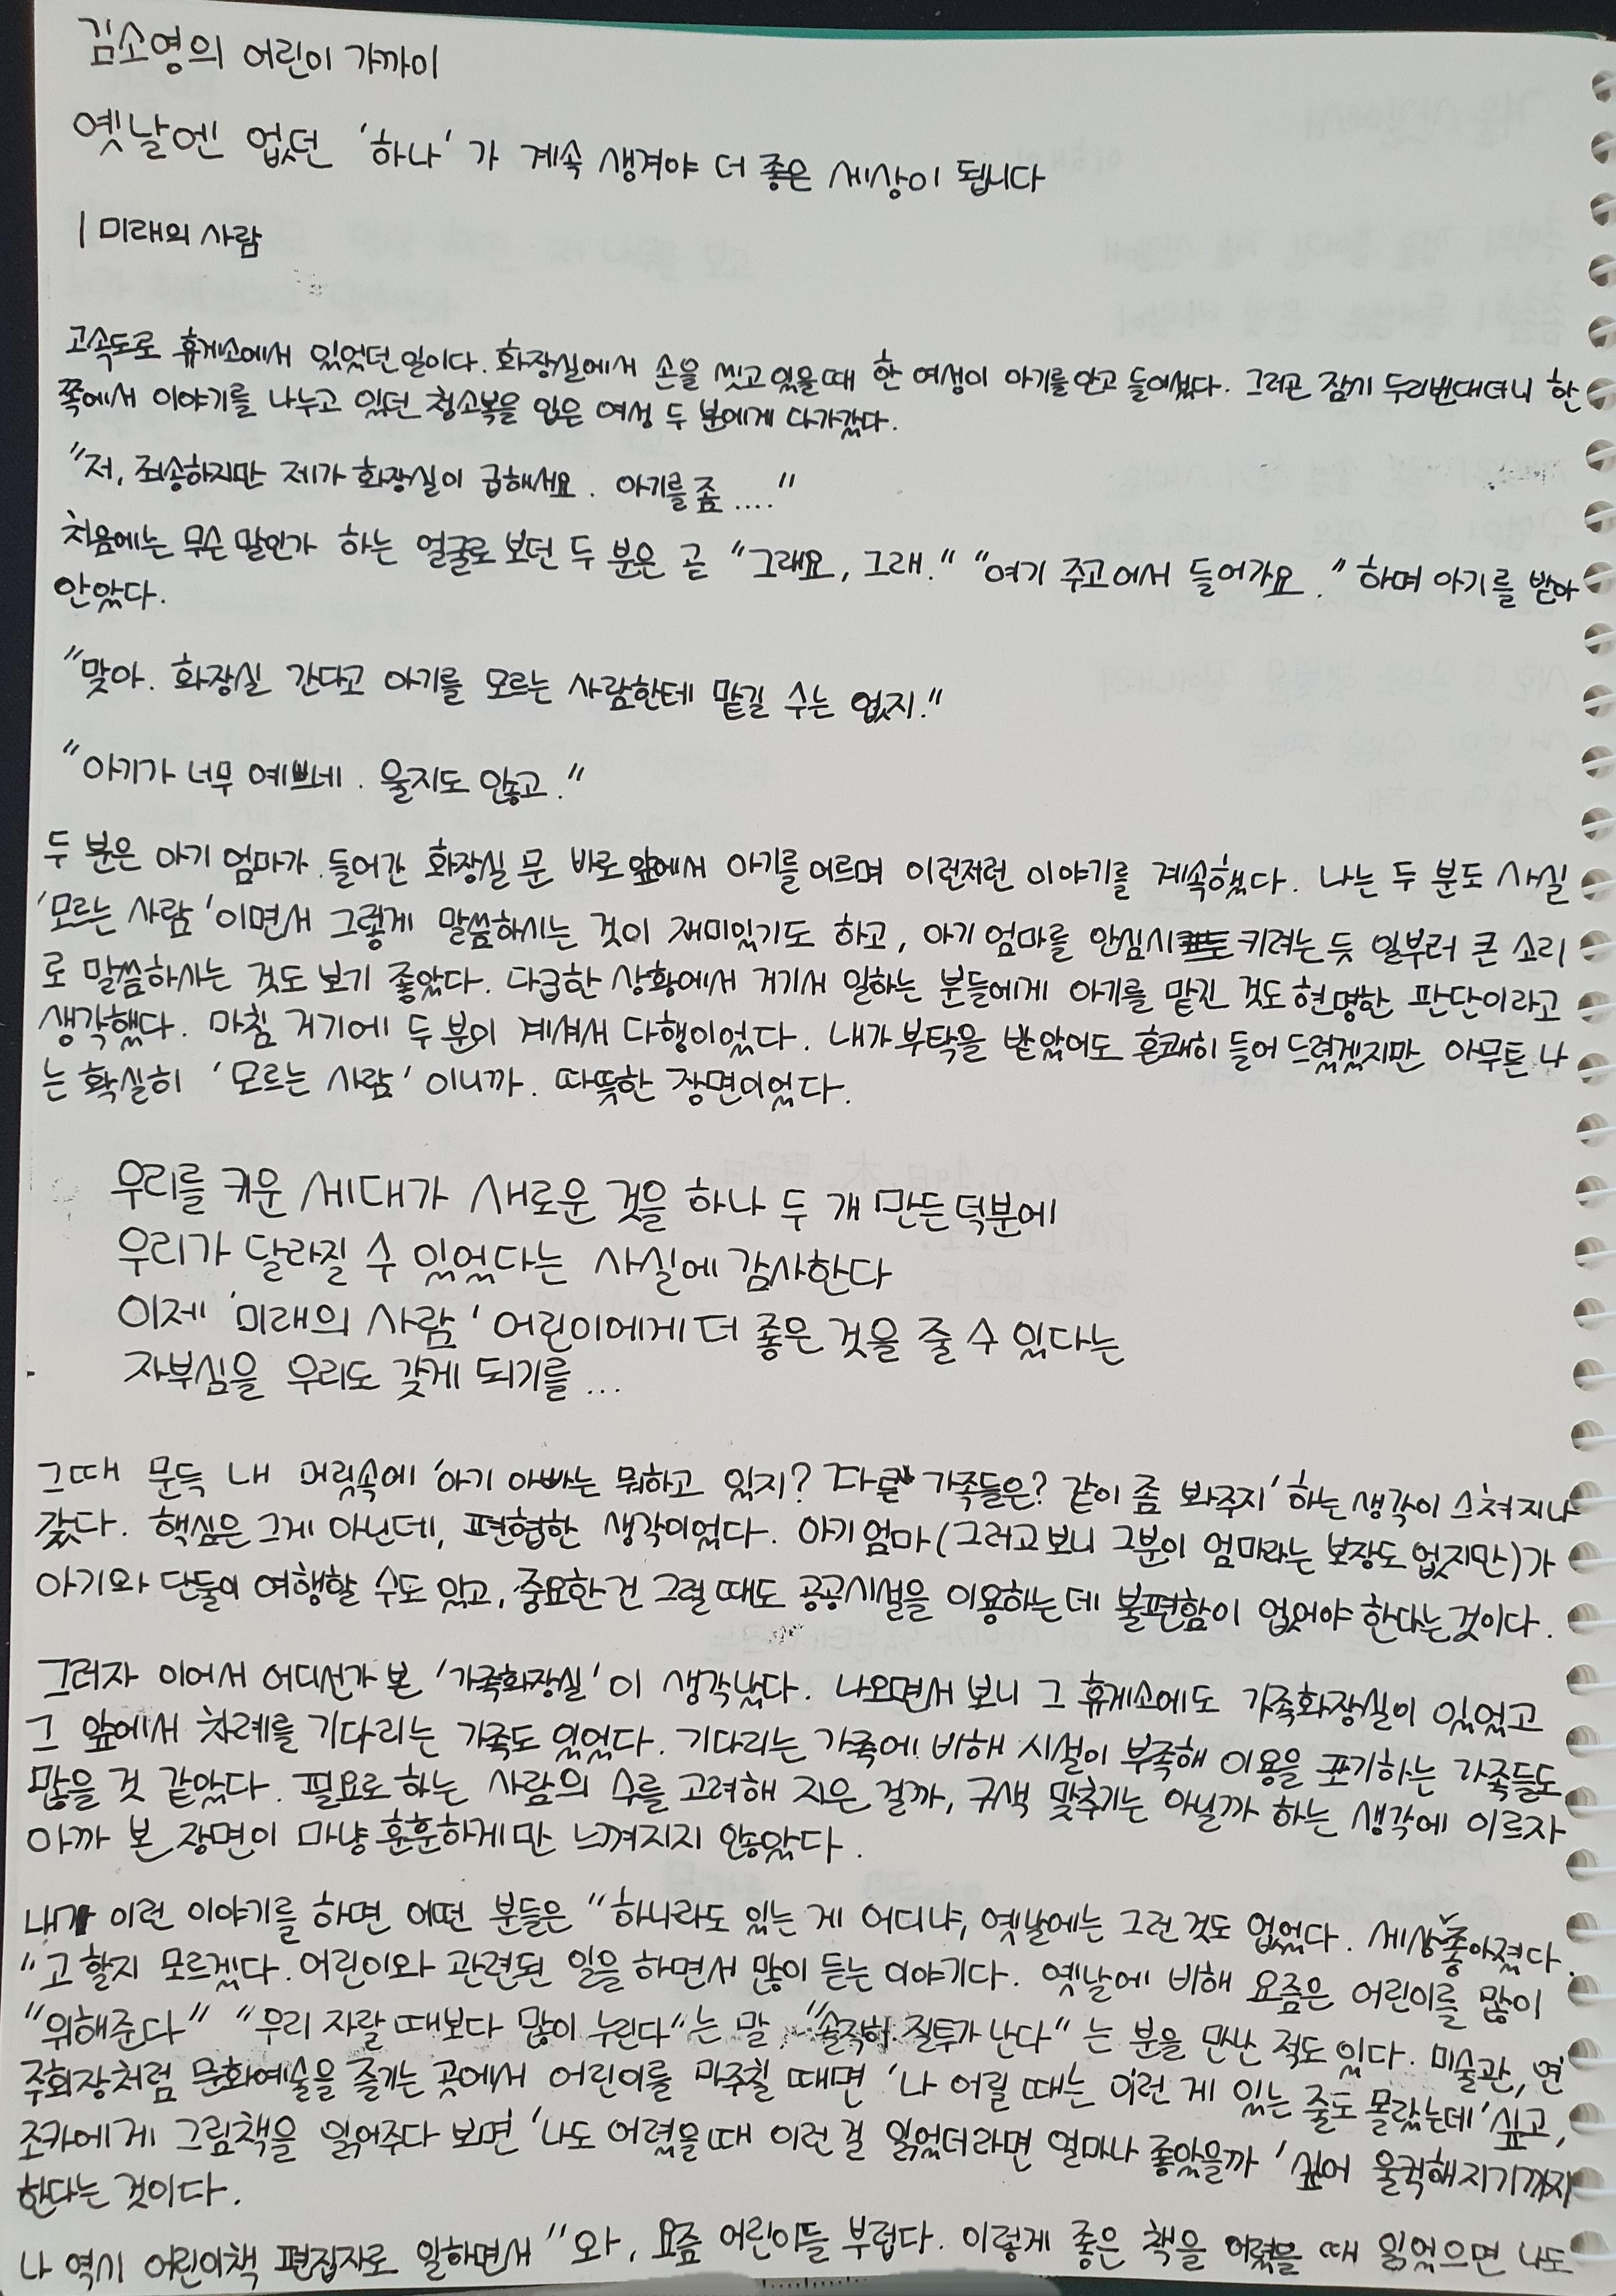 김소영의 어린이 가까이
옛날엔 없던 '하나'가 계속 생겨야 더 좋은 세상이 됩니다
| 미래의 사람
고속도로 휴게소에서 있었던 일이다. 화장실에서 손을 씻고 있을 때 한 여성이 아기를 안고 들어섰다. 그러곤 잠시 두리번대더니 한
쪽에서 이야기를 나누고 있던 청소복을 입은 여성 두 분에게 다가갔다.
"저, 죄송하지만 제가 화장실이 급해서요. 아기를 좀...."
처음에는 무슨 말인가 하는 얼굴로 보던 두 분은 곧 "그래요, 그래." "여기 주고 어서 들어가요." 하며 아기를 받아
안았다.
"맞아. 화장실 간다고 아기를 모르는 사람한테 맡길 수는 없지."
"아기가 너무 예쁘네. 울지도 않고."
두 분은 아기 엄마가 들어간 화장실 문 바로 앞에서 아기를 어르며 이런저런 이야기를 계속했다. 나는 두 분도 사실
'모르는 사람'이면서 그렇게 말씀하시는 것이 재미있기도 하고, 아기 엄마를 안심시키려는 듯 일부러 큰 소리
로 말씀하시는 것도 보기 좋았다. 다급한 상황에서 거기서 일하는 분들에게 아기를 맡긴 것도 현명한 판단이라고
생각했다. 마침 거기에 두 분이 계셔서 다행이었다. 내가 부탁을 받았어도 흔쾌히 들어 드렸겠지만 아무튼 나
는 확실히 '모르는 사람'이니까. 따뜻한 장면이었다.
우리를 키운 세대가 새로운 것을 하나 두 개 만든 덕분에
우리가 달라질 수 있었다는 사실에 감사한다
이제 '미래의 사람' 어린이에게 더 좋은 것을 줄 수 있다는
자부심을 우리도 갖게 되기를...
그때 문득 내 머릿속에 '아기 아빠는 뭐하고 있지? 다른 가족들은? 같이 좀 봐주지' 하는 생각이 스쳐 지나
갔다. 핵심은 그게 아닌데, 편협한 생각이었다. 아기 엄마(그러고 보니 그분이 엄마라는 보장도 없지만)가
아기와 단둘이 여행할 수도 있고, 중요한 건 그럴 때도 공공시설을 이용하는데 불편함이 없어야 한다는 것이다.
그러자 이어서 어디선가 본 '가족화장실'이 생각났다. 나오면서 보니 그 휴게소에도 가족화장실이 있었고
그 앞에서 차례를 기다리는 가족도 있었다. 기다리는 가족에 비해 시설이 부족해 이용을 포기하는 가족들도
많을 것 같았다. 필요로 하는 사람의 수를 고려해 지은 걸까, 구색 맞추기는 아닐까 하는 생각에 이르자
아까 본 장면이 마냥 훈훈하게만 느껴지지 않았다.
내가 이런 이야기를 하면 어떤 분들은 "하나라도 있는 게 어디냐, 옛날에는 그런 것도 없었다. 세상 좋아졌다.
"고 할지 모르겠다. 어린이와 관련된 일을 하면서 많이 듣는 이야기다. 옛날에 비해 요즘은 어린이를 많이
"위해준다" "우리 자랄 때보다 많이 누린다"는 말, "솔직히 질투가 난다"는 분을 만난 적도 있다. 미술관, 연
주회장처럼 문화예술을 즐기는 곳에서 어린이를 마주칠 때면 '나 어릴 때는 이런 게 있는 줄도 몰랐는데' 싶고,
조카에게 그림책을 읽어주다 보면 '나도 어렸을 때 이런 걸 읽었더라면 얼마나 좋았을까' 싶어 울컥해지기까지
한다는 것이다.
나 역시 어린이책 편집자로 일하면서 "와, 요즘 어린이들 부럽다. 이렇게 좋은 책을 어렸을 때 읽었으면 나도